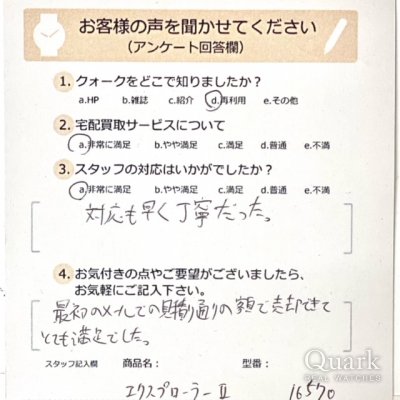 お客様の声を聞かせてください
（アンケート回答欄）
1. クォークをどこで知りましたか？
a.HP b.雑誌 c.紹介 d.再利用 e.その他
2. 宅配買取サービスについて
a.非常に満足 b.やや満足 c.満足 d.普通 e.不満
3. スタッフの対応はいかがでしたか？
a.非常に満足 b.やや満足 c.満足 d.普通 e.不満
対応も早く丁寧だった。
4. お気付きの点やご要望がございましたら、
お気軽にご記入下さい。
最初のメールでの見積り通りの額で売却できて
とても満足でした。
スタッフ記入欄 商品名： 型番：
エクスプローラーⅡ 16570
Quark
REAL WATCHES